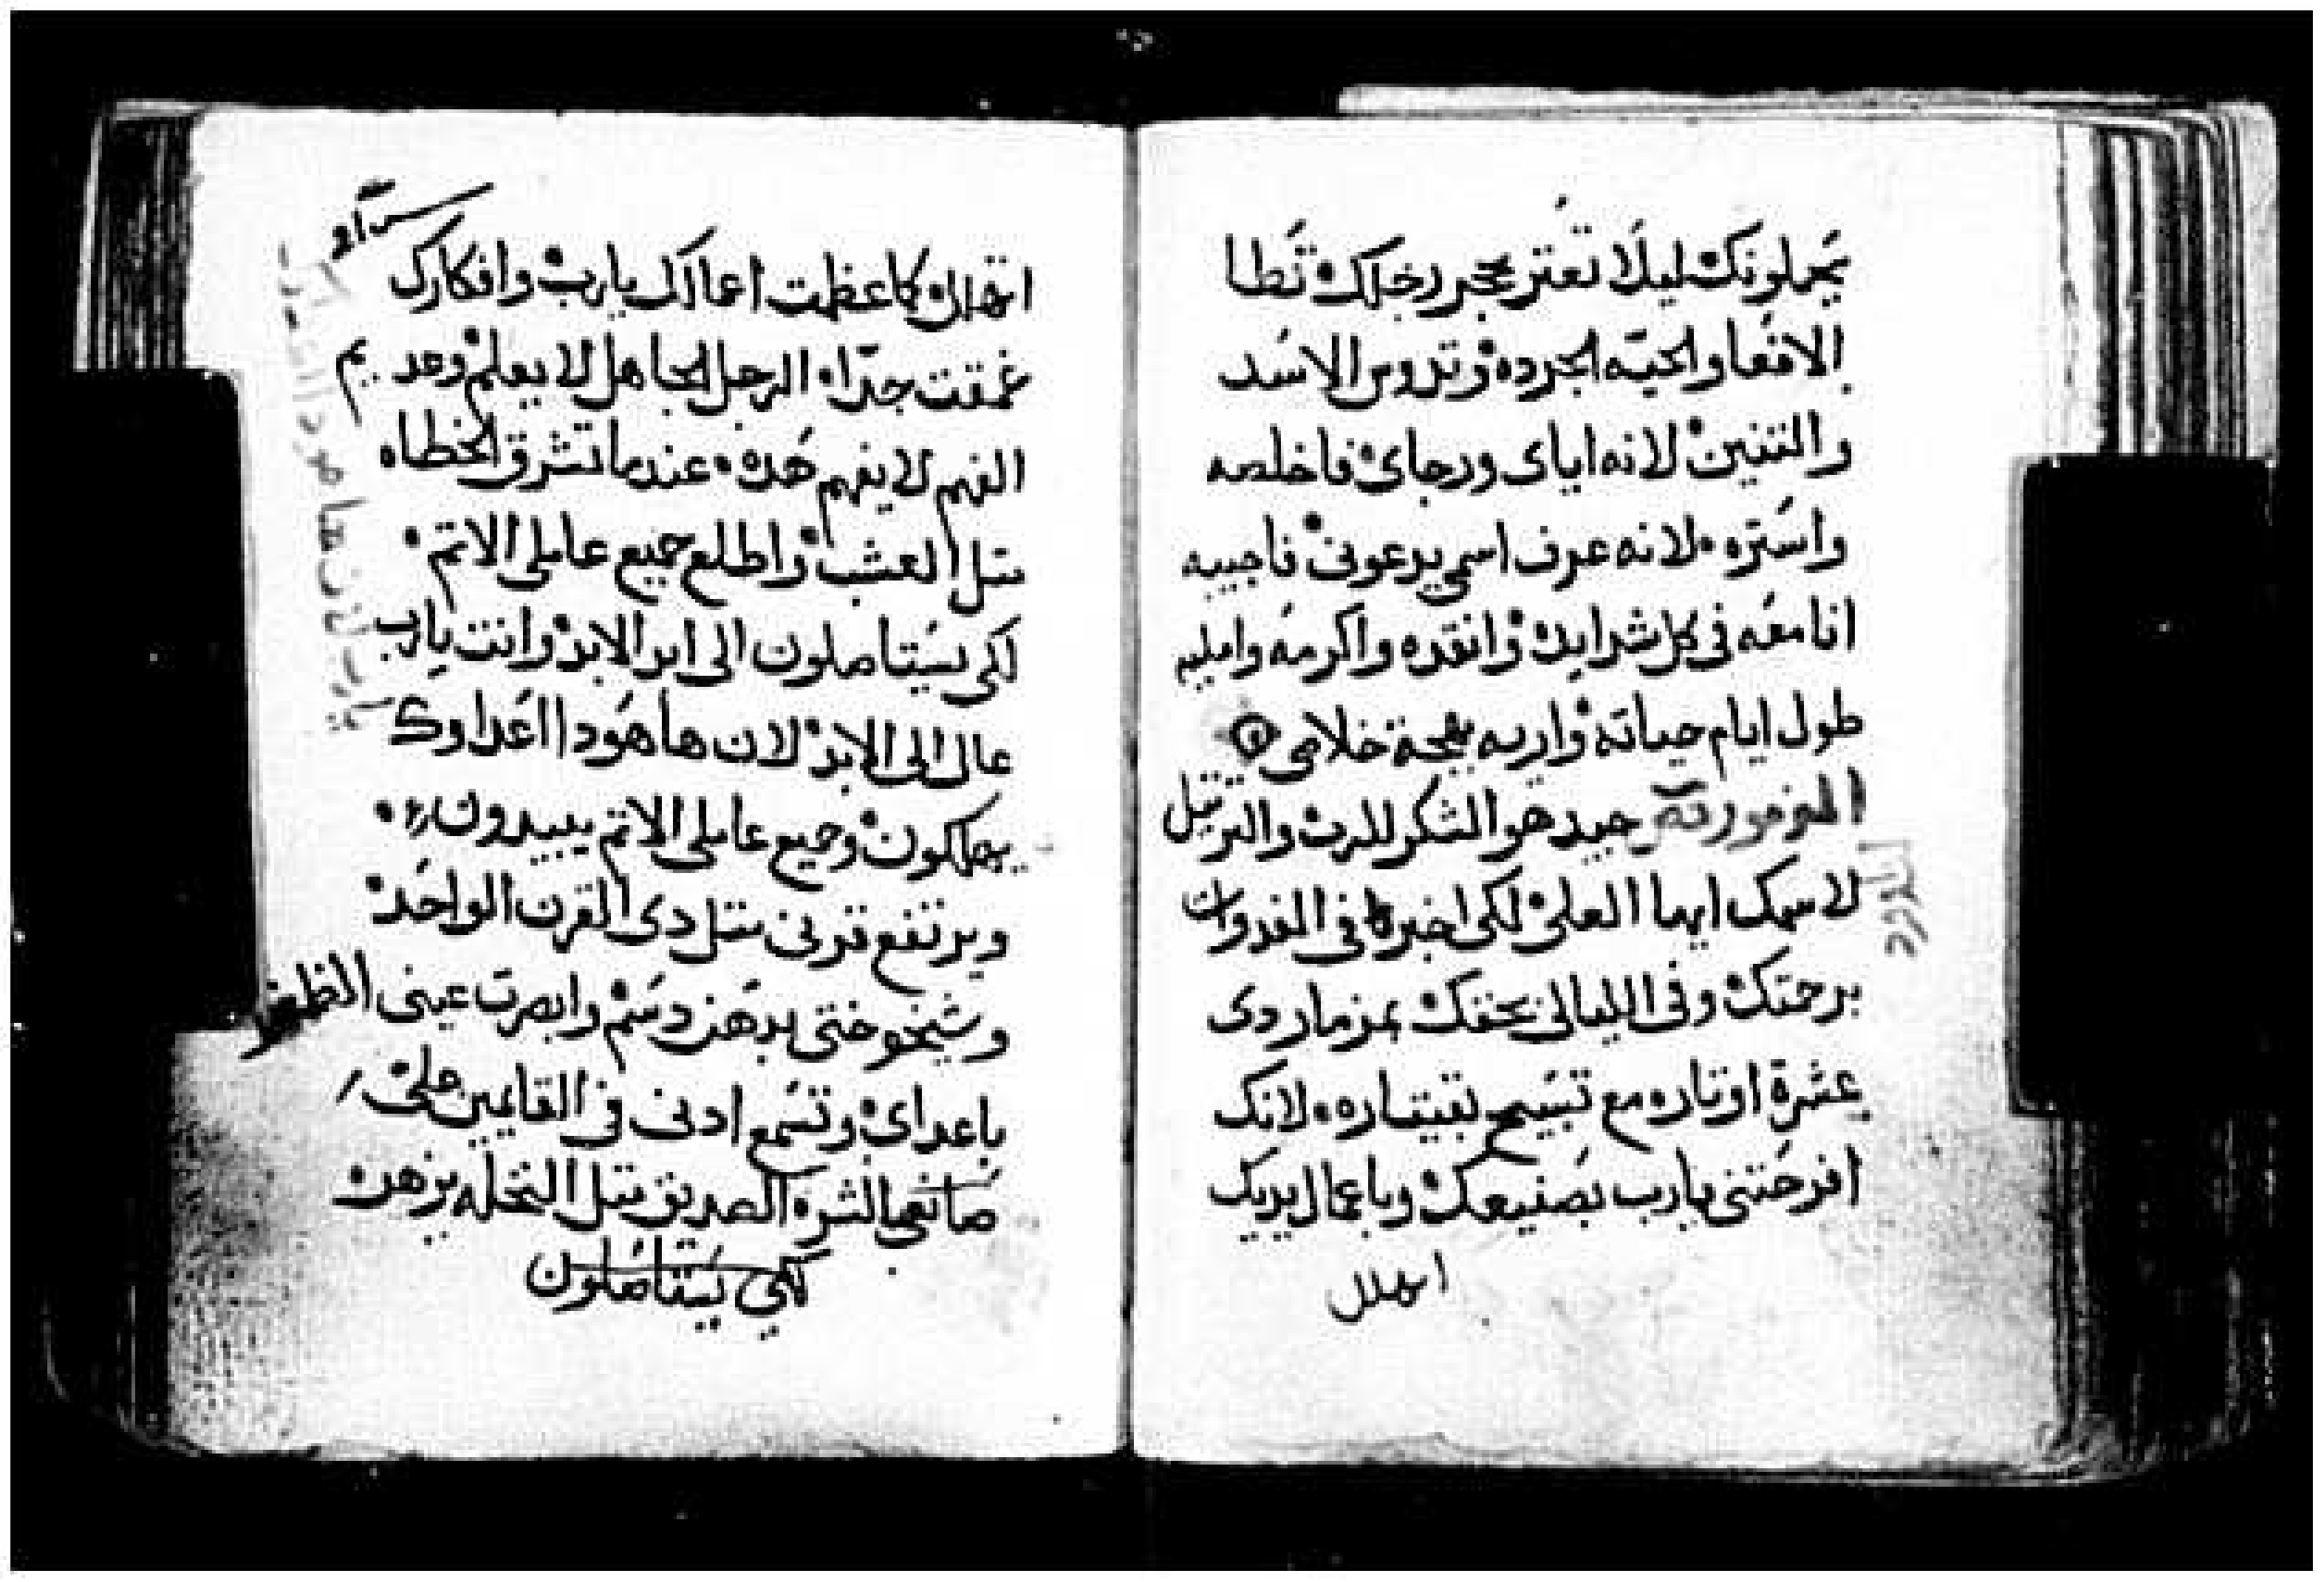 يحملونك ليلا تعتر بحجر رجلك تطا
الافعا والحيه الجرده وتدوس الاسد
والتنين لانه اياى ورجاى فاخلصه
واستره لانه عرف اسمي يدعونى فاجيبه
انا معه فى كل شدايده وانقده واكرمه وامليه
طول ايام حياته واريه بهجة خلاصى
المزمور جيد هو الشكر للرب والترتيل
لاسمك ايها العلى لكى اخبر فى الغدوات
برحمتك وفى الليالى بحقك بمزمار دى
عشرة اوتاره مع تسبيح بقيتاره لانك
افرحتنى يارب بصنيعك وباعمال يديك
اتهلل
اتهلل كما عظمت اعمالك يارب وافكارك
عمقت جدا الرجل الجاهل لا يعلم وعديم
الفهم لا يفهم هده عندما تشرق الخطاه
متل العشب واطلع جميع عاملى الاتم
لكى يستاصلون الى ابد الابد وانت يارب
عال الى الابد لان ها هودا اعداوك
يهلكون وجميع عاملى الاتم يبيدون
ويرتفع قرنى متل دى القرن الواحد
وشيخوختى بدهن دسم وابصرت عينى الظفر
باعداى وتسمع ادنى فى القايمين على
صانعى الشره الصديق متل النخله يزهر
لكي يستاصلون